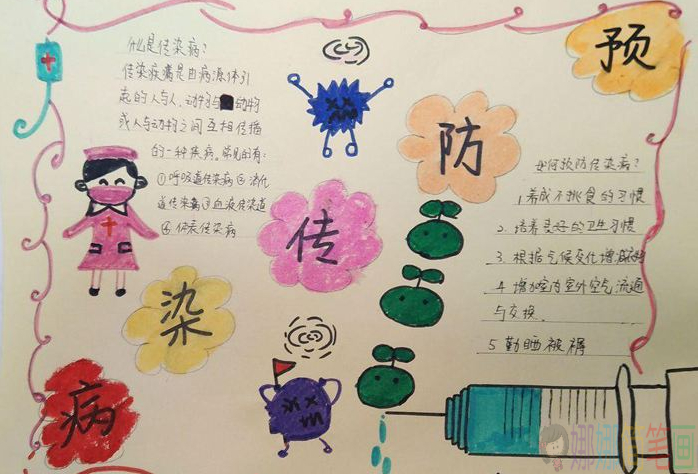 预
防
传
染
病
什么是传染病?
传染疾病是由病源体引
起的人与人、动物与动物
或人与动物之间互相传播
的一种疾病。常见的有:
①呼吸道传染病②消化
道传染病③血液传染道
④体表传染病
如何预防传染病?
1.养成不挑食的习惯
2.培养良好的卫生习惯
3.根据气候变化增减衣物
4.增加室内室外空气流通
与交换.
5 勤晒被褥
娜娜 笔画